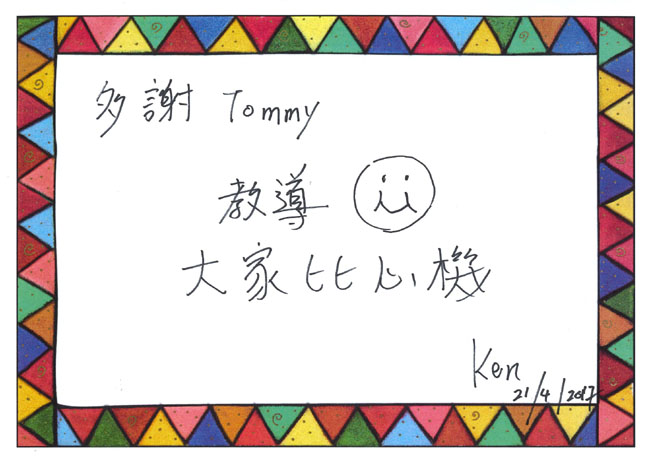 多謝 Tommy
教導
大家比心機
Ken
21/4/2017